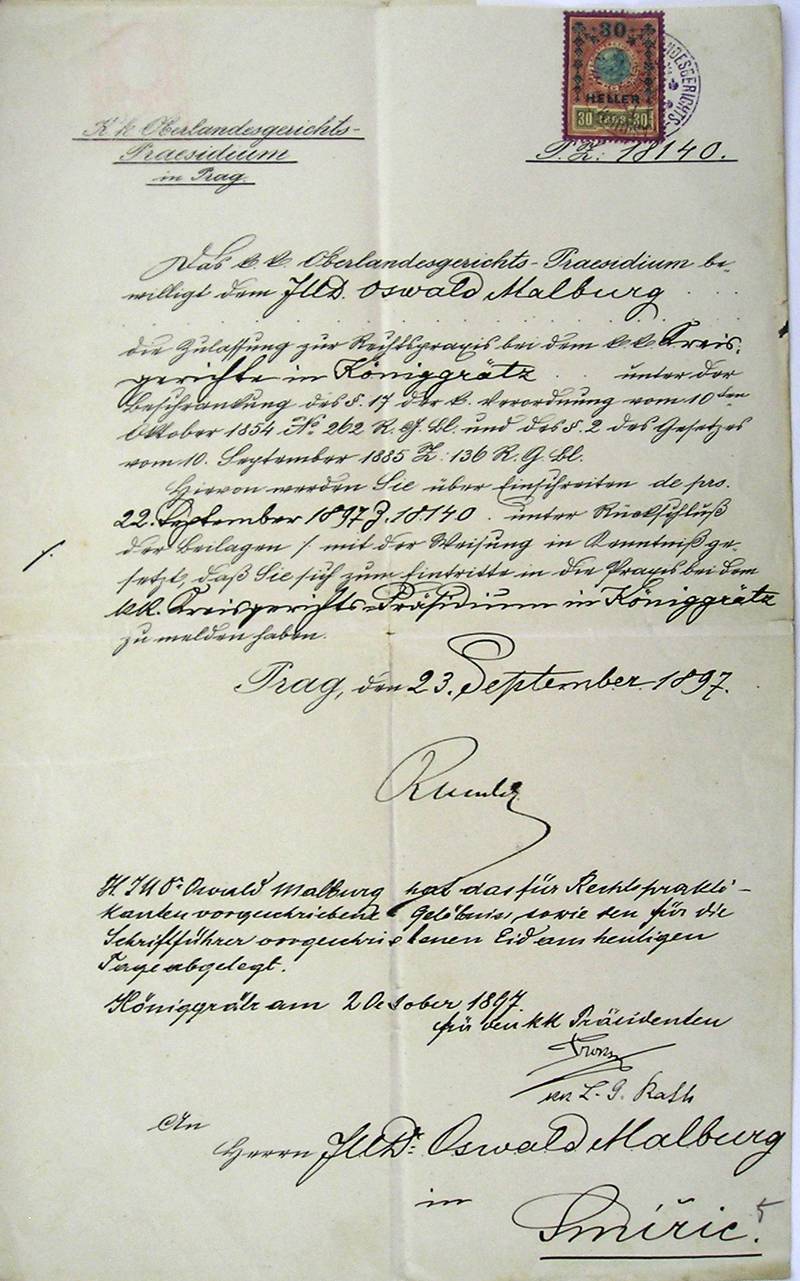 30
HELLER
30 1898 30
K. k. Oberlandesgerichts-
Praesidium
in Prag.
P. Z: 18140.
Das k. k. Oberlandesgerichts-Praesidium be-
willigt dem JUD. Oswald Malburg
die Zulassung zur Rechtspraxis bei dem k. k. Kreis-
gerichte in Königgrätz unter der
Beschränkung des §. 17 der k. Verordnung vom 10ten
Oktober 1854 No. 262 R. G. Bl. und des § 2 des Gesetzes
vom 10. September 1885 Z: 136 R. G. Bl.
Hievon werden Sie über Einschreiten de prs.
22. September 1897 Z. 18140. unter Rückschluß
der Beilagen ⁒ mit der Weisung in Kenntniß ge-
setzt, daß Sie sich zum Eintritte in die Praxis bei dem
kk. Kreisgerichts Präsidium in Königgrätz
zu melden haben.
Prag, den 23. September 1897.
H JUDr Oswald Malburg hat das für Rechtsprakti-
kanten vorgeschriebene Gelöbnis, sowie den für die
Schriftführer vorgeschriebenen Eid am heutigen
Tage abgelegt.
Königgrätz am 2 October 1897
für den kk Präsidenten
L. G. Rath
An
Herrn JUDr. Oswald Malburg
in
Smiřic.